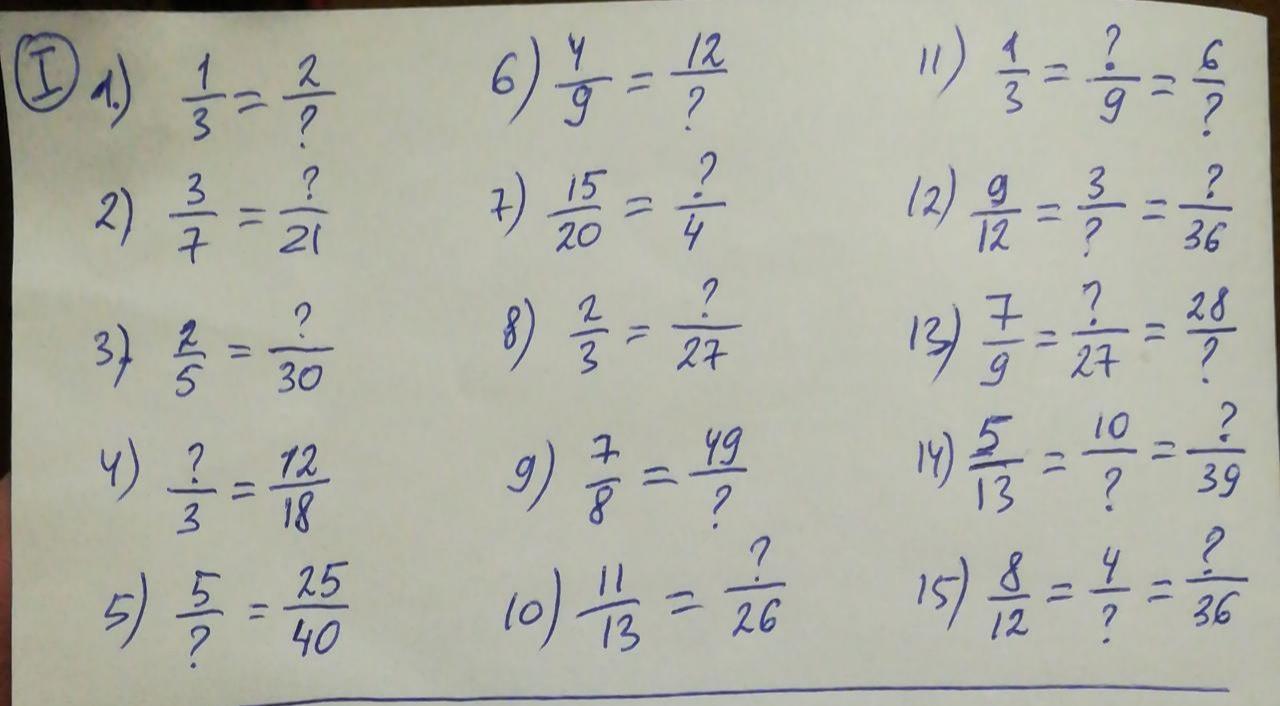 I
1) 1/3 = 2/?
2) 3/7 = ?/21
3) 2/5 = ?/30
4) ?/3 = 12/18
5) 5/? = 25/40
6) 4/9 = 12/?
7) 15/20 = ?/4
8) 2/3 = ?/27
9) 7/8 = 49/?
10) 11/13 = ?/26
11) 1/3 = ?/9 = 6/?
12) 9/12 = 3/? = ?/36
13) 7/9 = ?/27 = 28/?
14) 5/13 = 10/? = ?/39
15) 8/12 = 4/? = ?/36